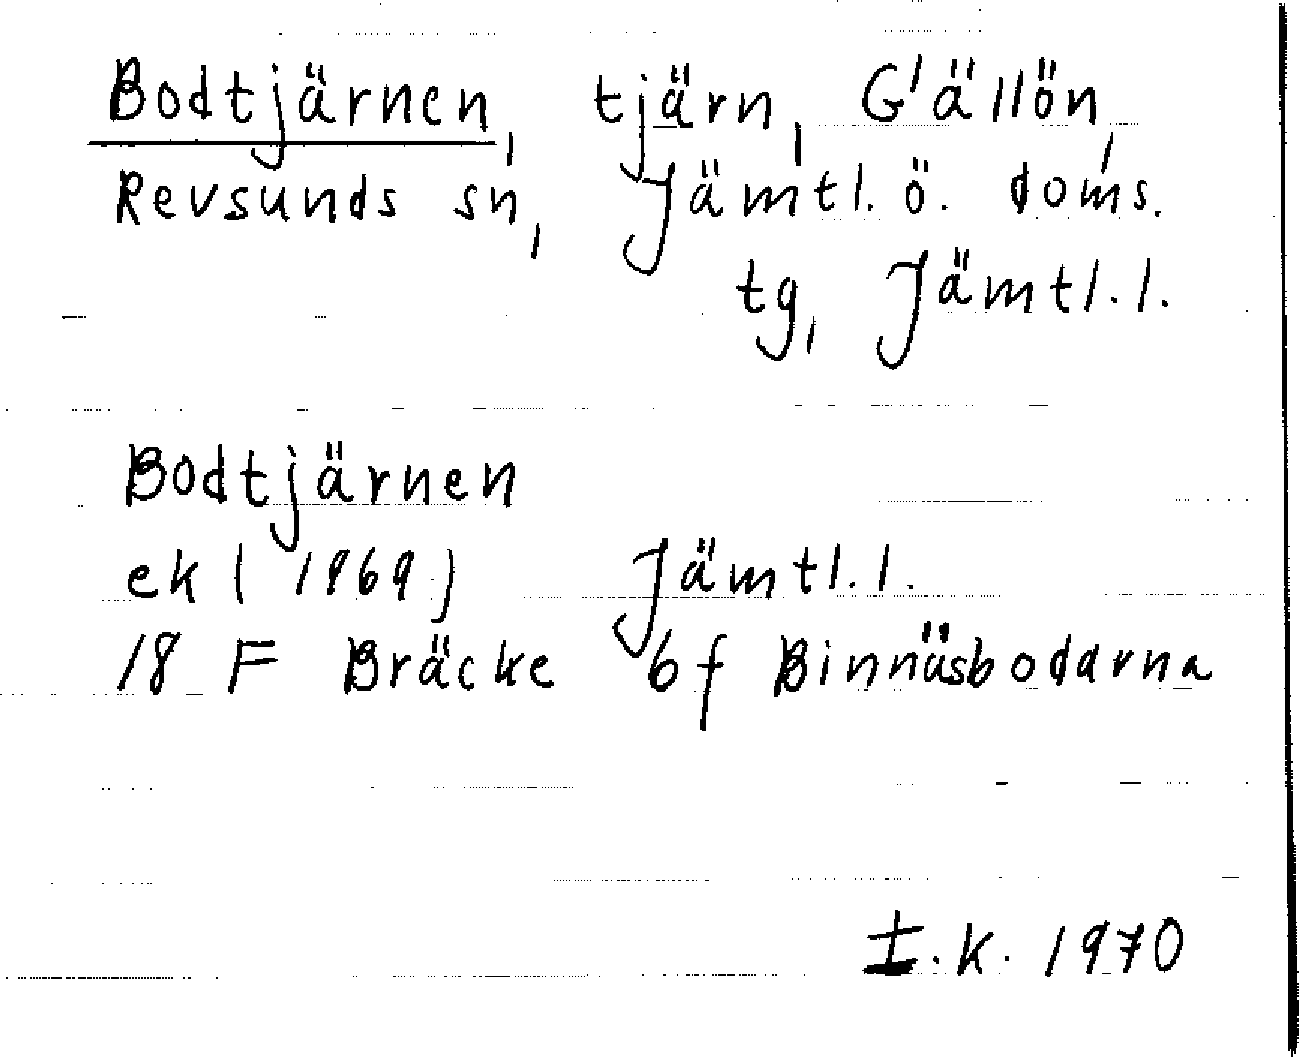 Bodtjärnen, tjärn, Gällön,
Revsunds sn, Jämtl. ö. doms.
tg, Jämtl. l.
Bodtjärnen
ek (1969) Jämtl. l.
18 F Bräcke 6f Binnäsbodarna
I.K. 1970